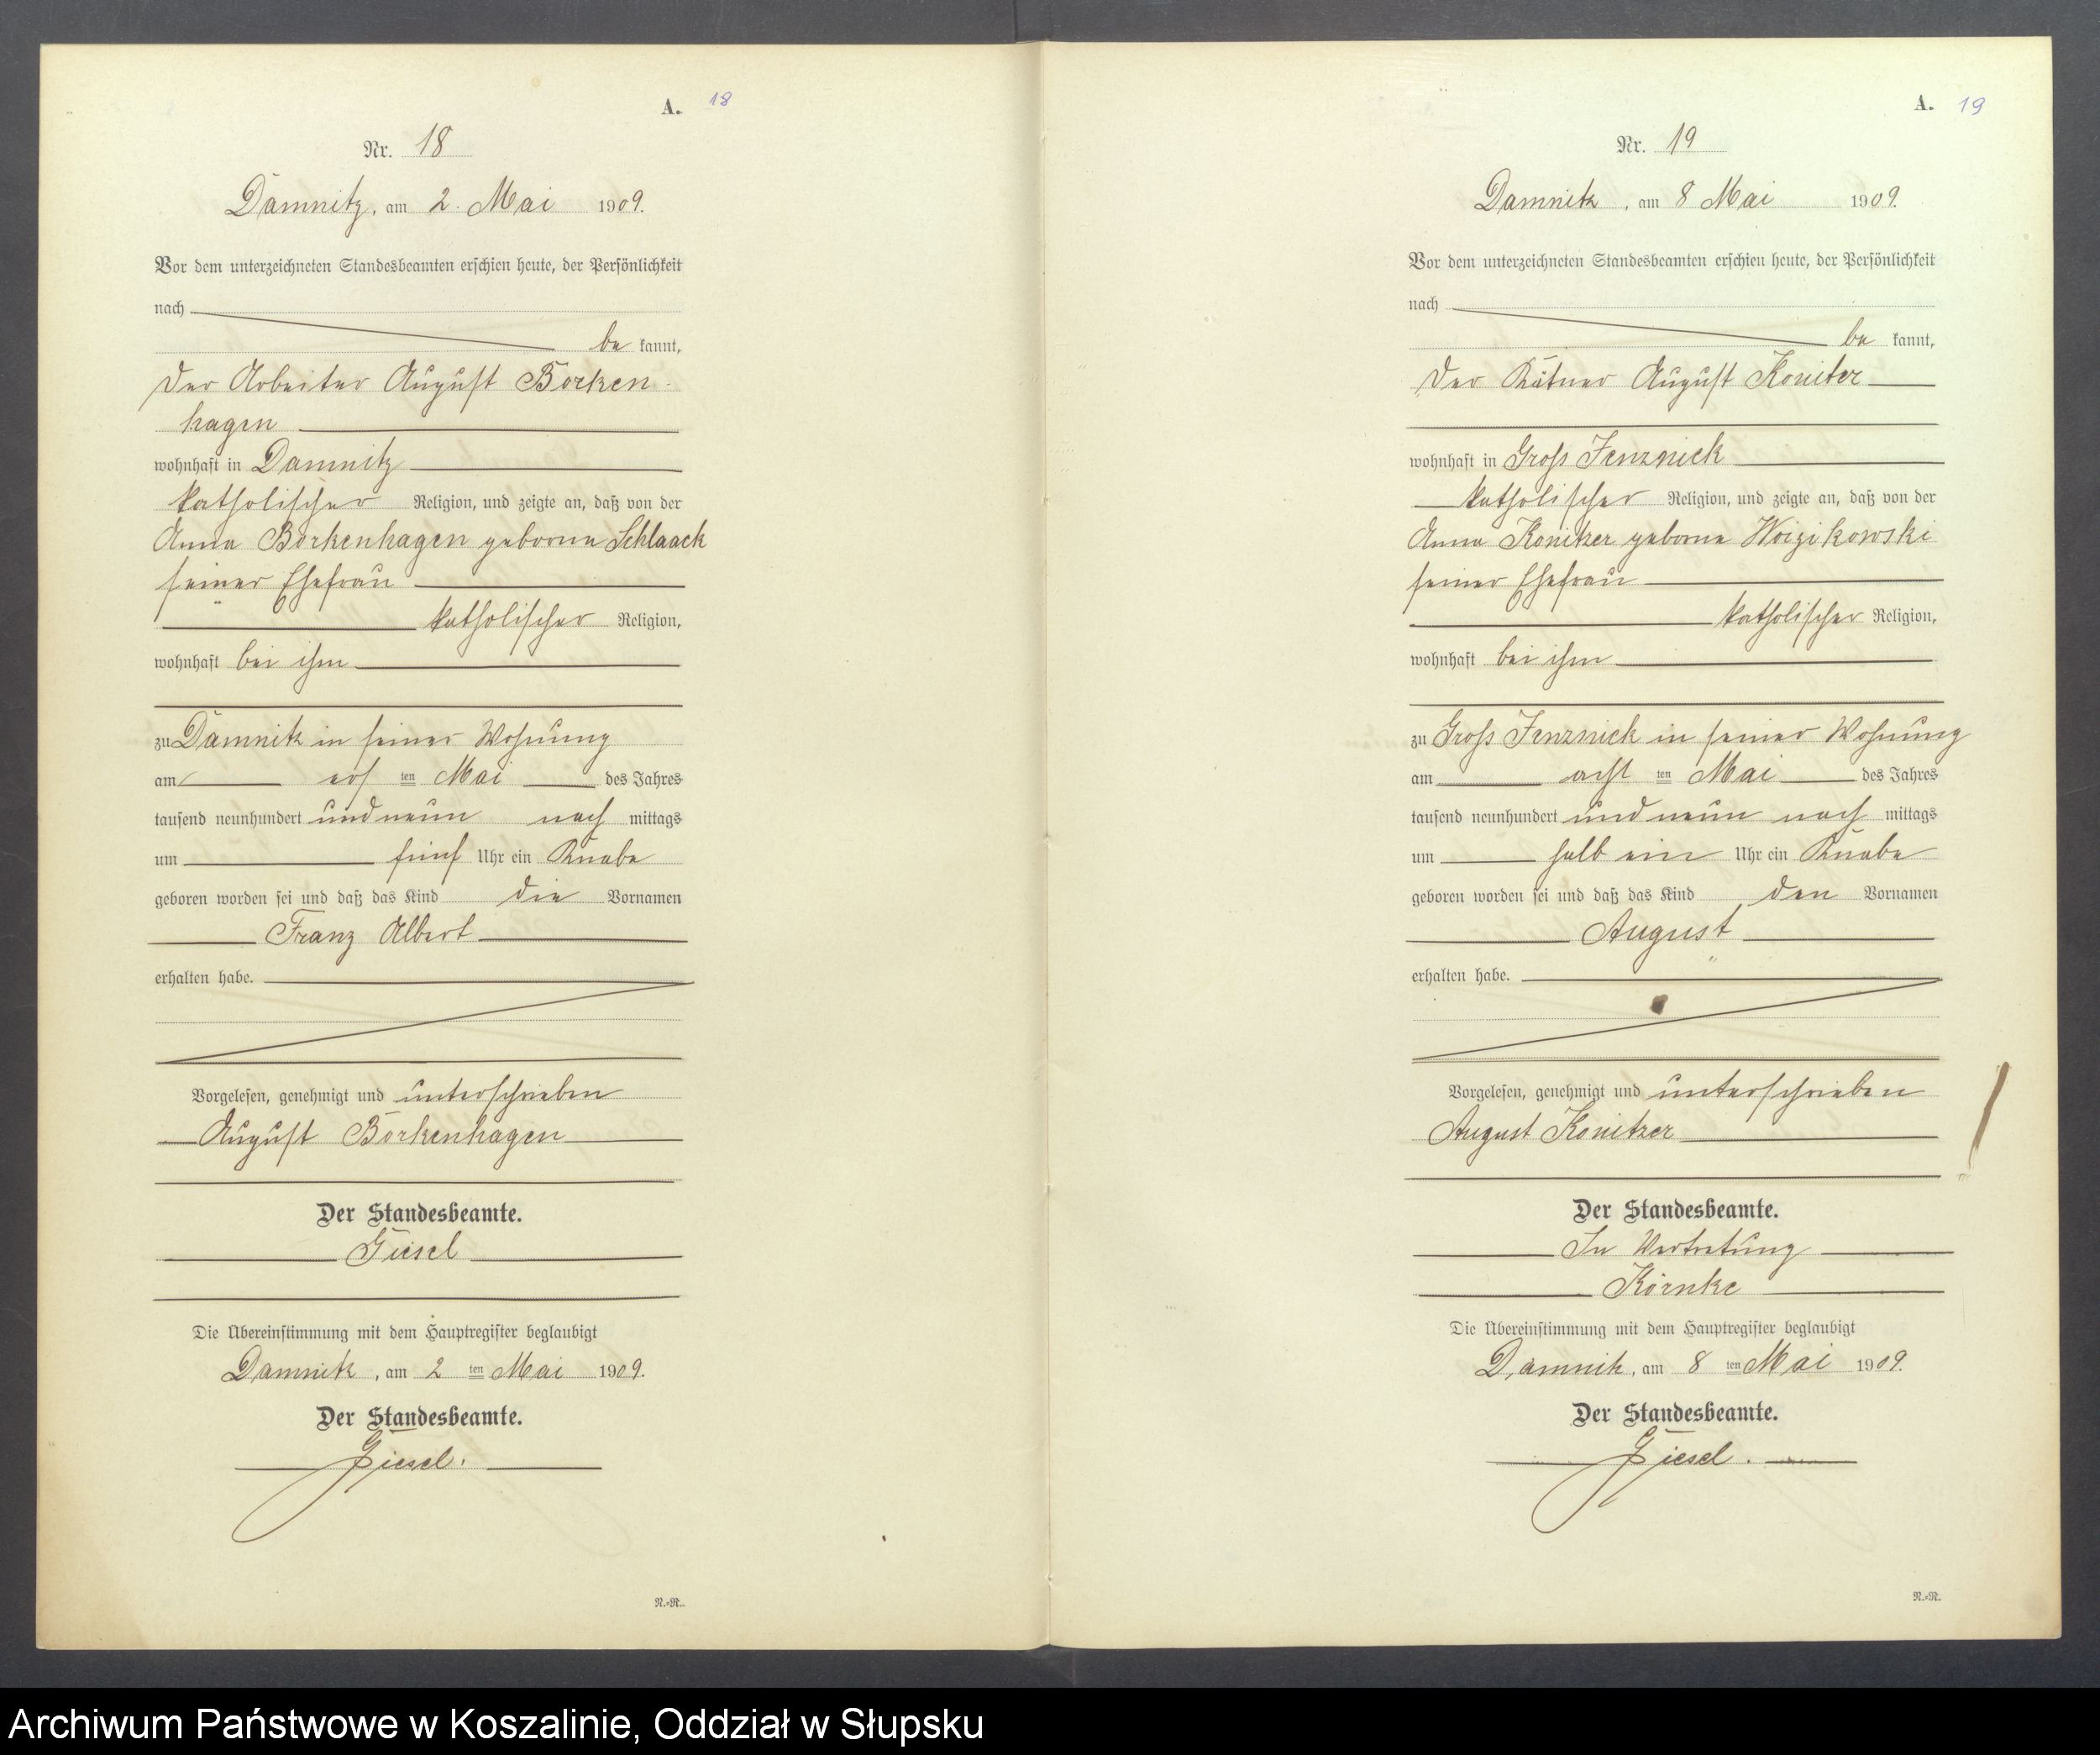 A. 18
Nr. 18
Damnitz, am 2. Mai 1909.
Vor dem unterzeichneten Standesbeamten erschien heute, der Persönlichkeit
nach
be kannt,
der Arbeiter August Borken-
hagen
wohnhaft in Damnitz
katholischer Religion, und zeigte an, daß von der
Anna Borkenhagen geborne Schlaack
seiner Ehefrau
katholischer Religion,
wohnhaft bei ihm
zu Damnitz in seiner Wohnung
am ers ten Mai des Jahres
tausend neunhundert und neun nach mittags
um fünf Uhr ein Knabe
geboren worden sei und daß das Kind die Vornamen
Franz Albert
erhalten habe.
Vorgelesen, genehmigt und unterschrieben
August Borkenhagen
Der Standesbeamte.
Giesel
Die Übereinstimmung mit dem Hauptregister beglaubigt
Damnitz, am 2 ten Mai 1909.
Der Standesbeamte.
Giesel.
N.=R.
A. 19
Nr. 19
Damnitz, am 8 Mai 1909.
Vor dem unterzeichneten Standesbeamten erschien heute, der Persönlichkeit
nach
be kannt,
der Kätner August Konitzer
wohnhaft in Gross Jenznick
katholischer Religion, und zeigte an, daß von der
Anna Konitzer geborne Woizikowski
seiner Ehefrau
katholischer Religion,
wohnhaft bei ihm
zu Gross Jenznick in seiner Wohnung
am acht ten Mai des Jahres
tausend neunhundert und neun nach mittags
um halb ein Uhr ein Knabe
geboren worden sei und daß das Kind den Vornamen
August
erhalten habe.
Vorgelesen, genehmigt und unterschrieben
August Konitzer
Der Standesbeamte.
In Vertretung
Körnke
Die Übereinstimmung mit dem Hauptregister beglaubigt
Damnitz, am 8 ten Mai 1909.
Der Standesbeamte.
Giesel.
N.=R.
Archiwum Państwowe w Koszalinie, Oddział w Słupsku